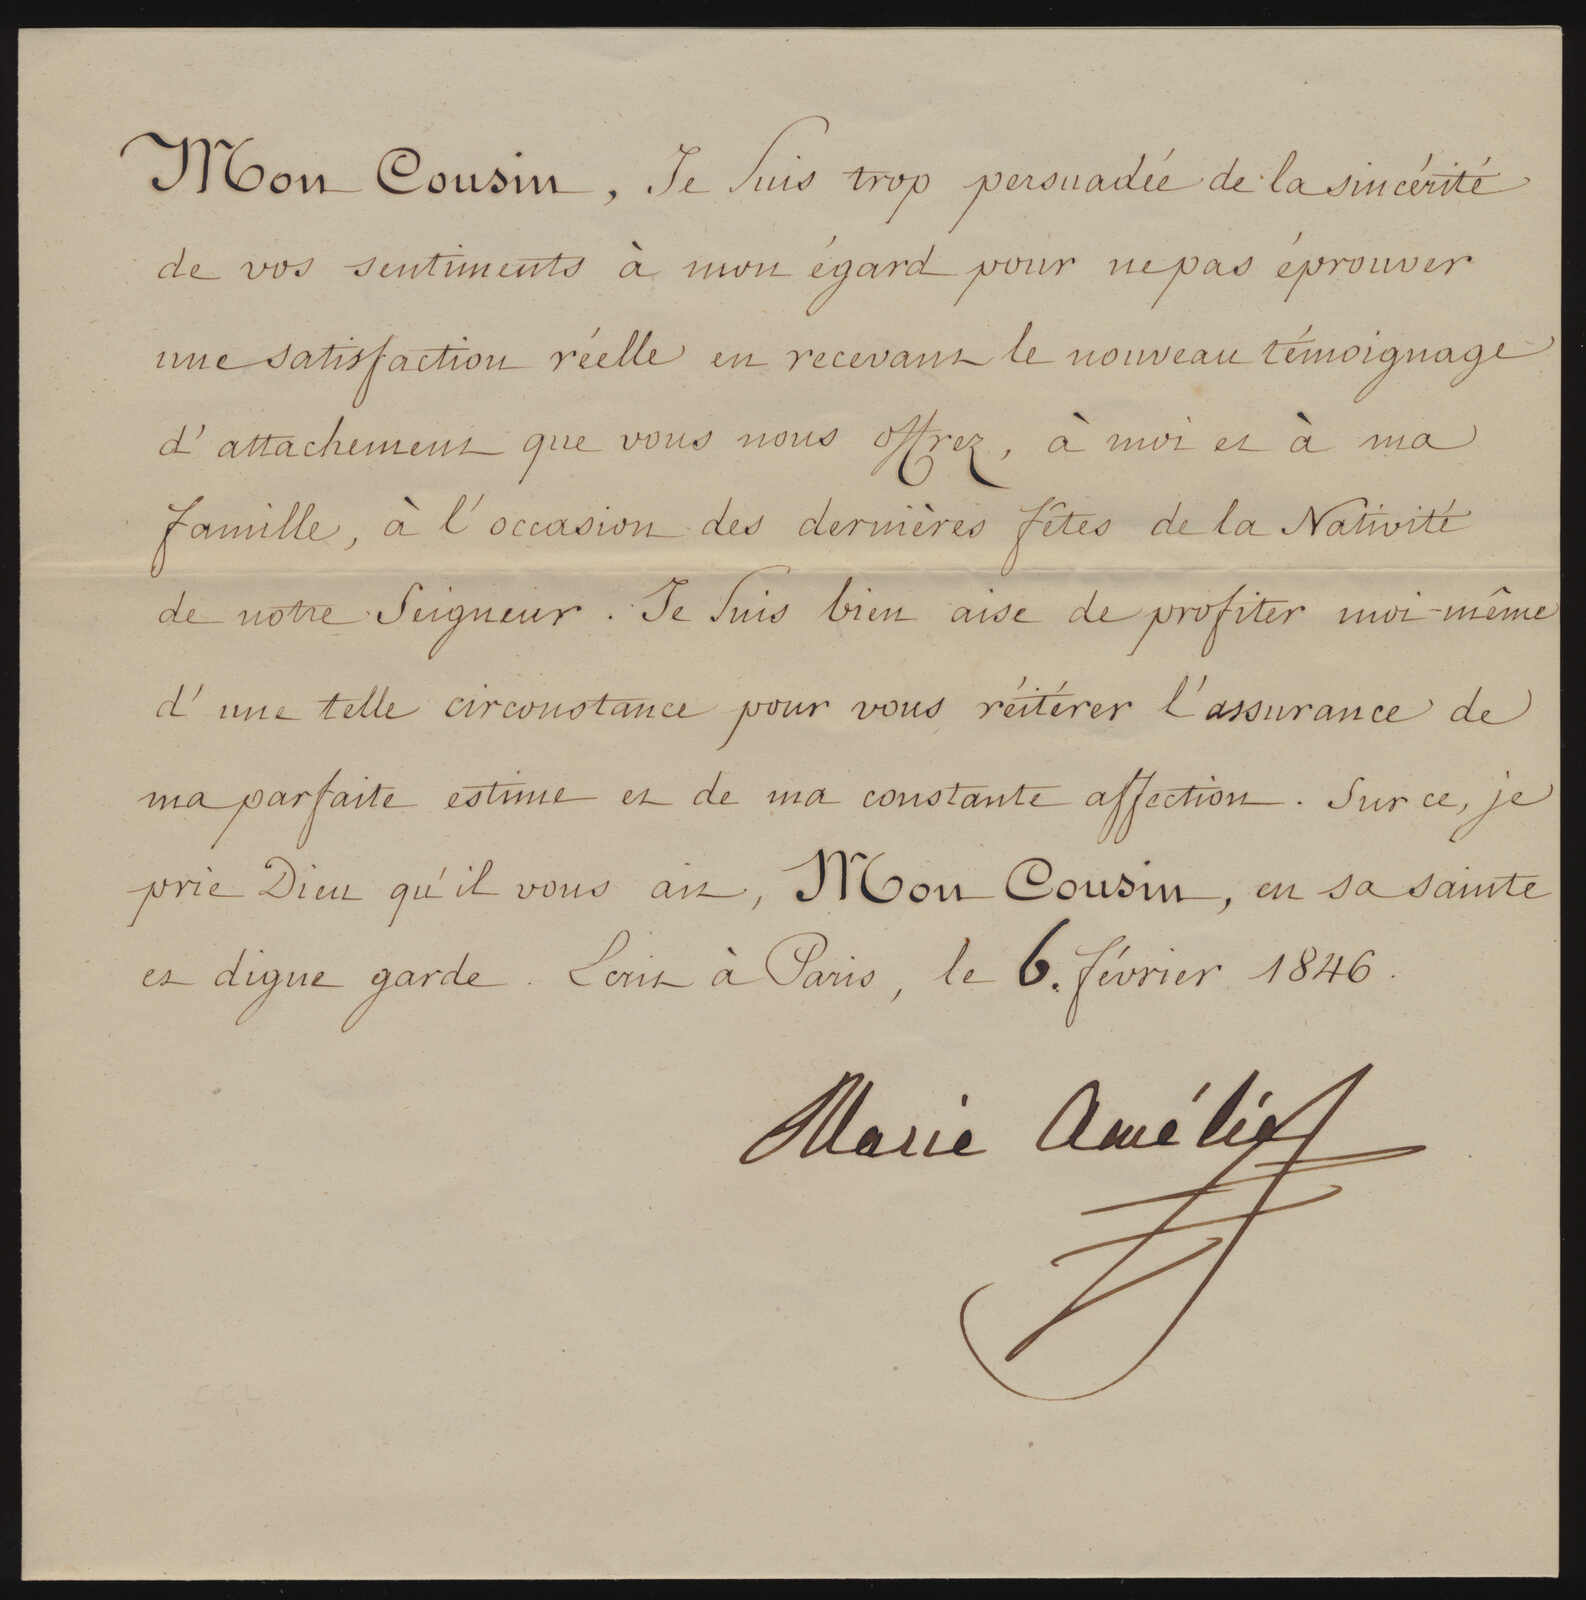 Mon Cousin, Je Suis trop persuadée de la sincérité
de vos sentiments à mon égard pour ne pas éprouver
une satisfaction réelle en recevant le nouveau témoignage
d'attachement que vous nous offrez, à moi et à ma
famille, à l'occasion des dernières fêtes de la Nativité
de notre Seigneur. Je Suis bien aise de profiter moi-même
d'une telle circonstance pour vous réitérer l'assurance de
ma parfaite estime et de ma constante affection. Sur ce, je
prie Dieu qu'il vous ait, Mon Cousin, en sa sainte
et digne garde. Ecrit à Paris, le 6. février 1846.
Marie Amélie